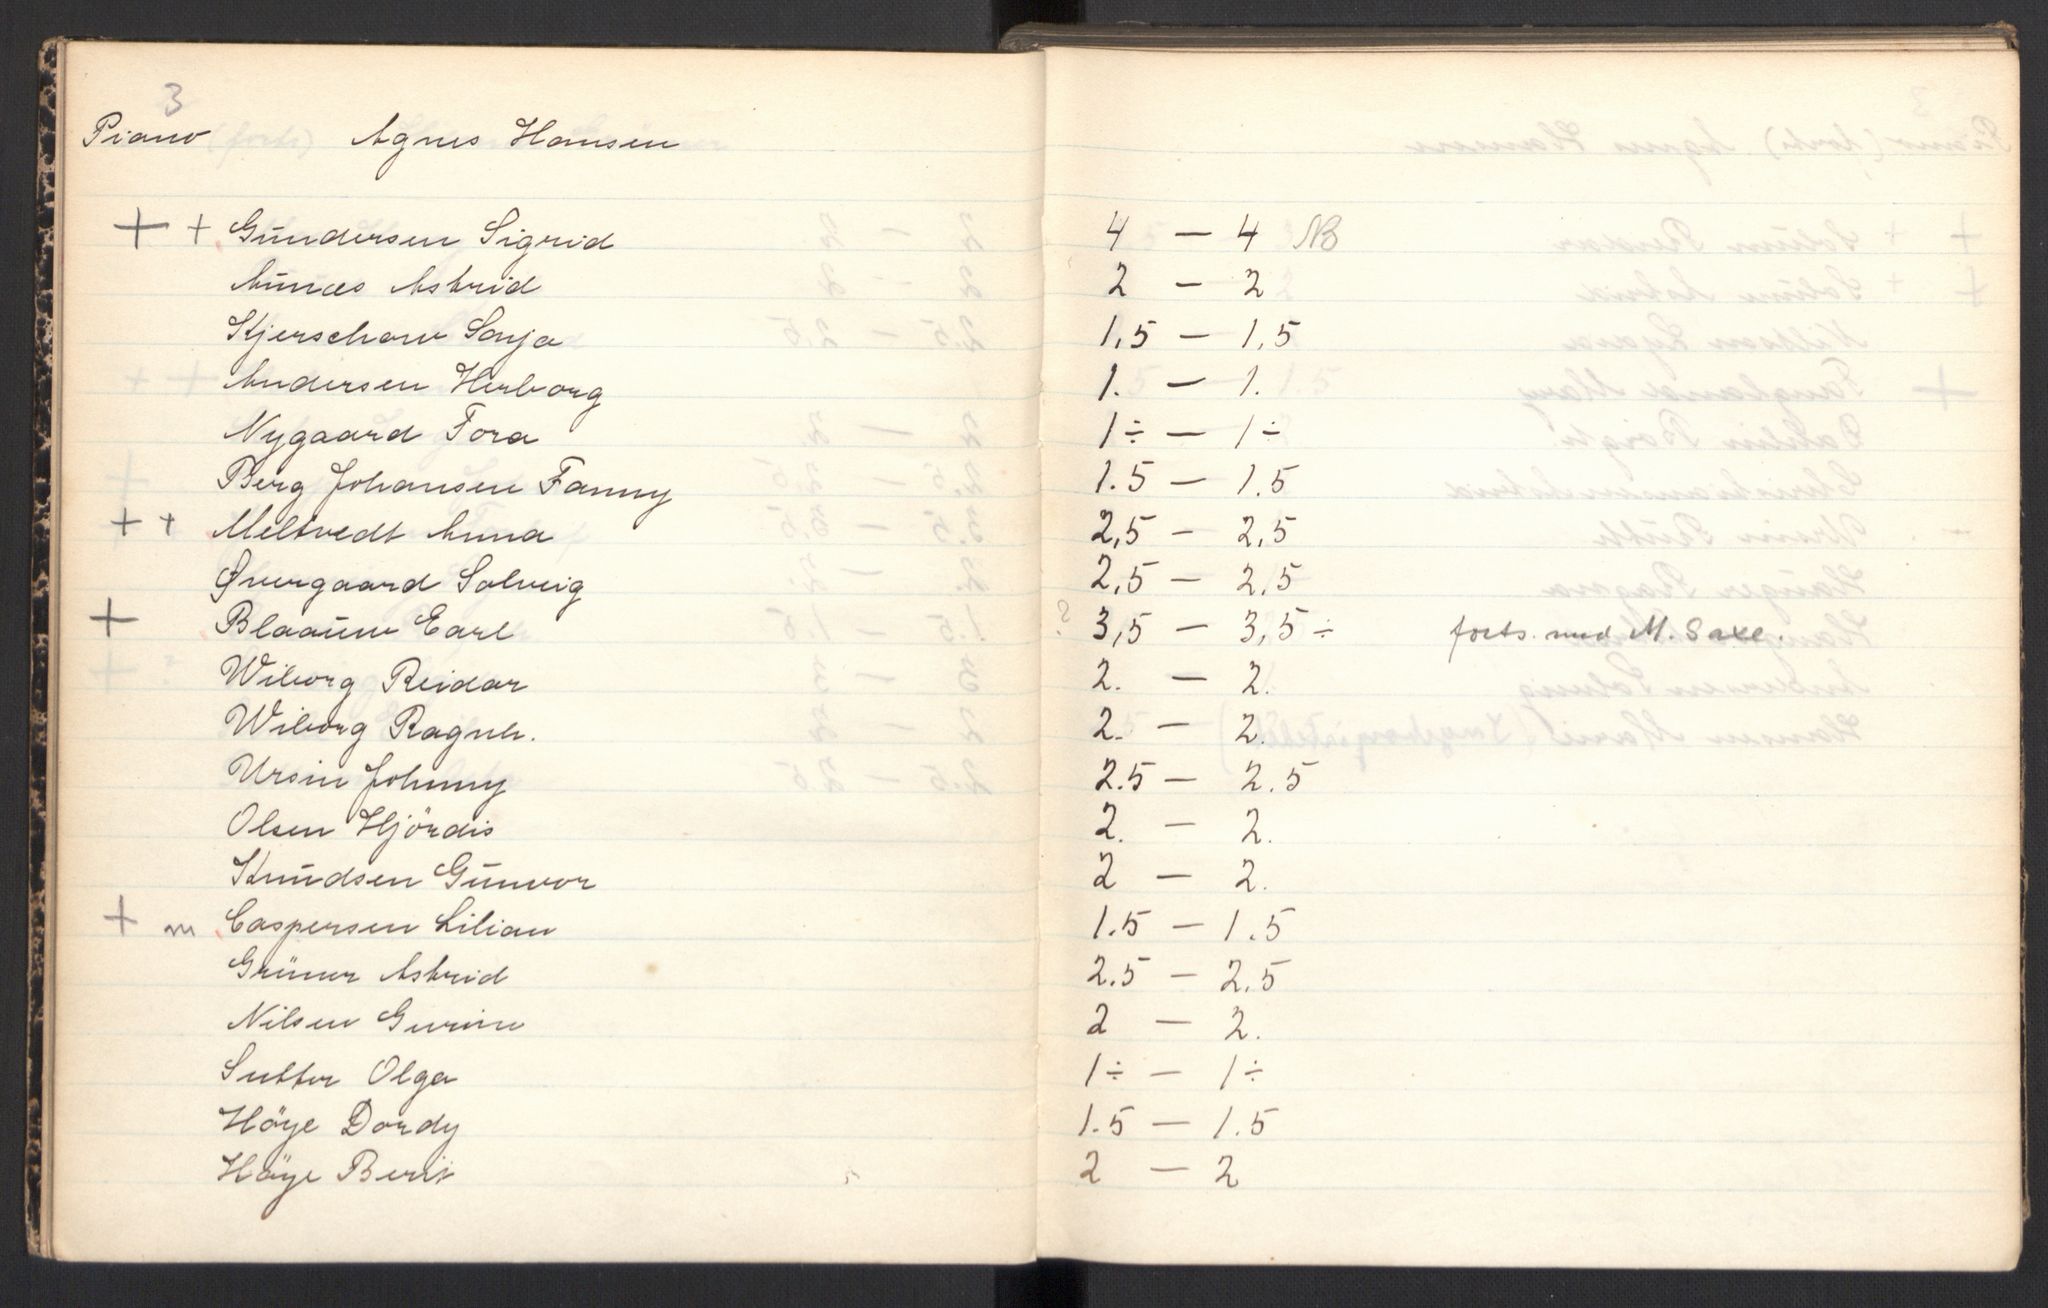 3
Piano Agnes Hansen
+ + Gundersen Sigrid 4 — 4 NB
Aunæs Astrid 2 — 2
Kjerschow Sonja 1,5 — 1,5
Andersen Herborg 1. — 1.
Nygaard Tora 1÷ — 1÷
Berg Johansen Fanny 1.5 — 1.5
+ + Meltvedt Anna 2,5 — 2,5
Øvergaard Solveig 2,5 — 2,5
+ Blaauw Earl ? 3,5 — 3,5÷ forts. med M. Saxe.
Wiborg Reidar 2. — 2.
Wiborg Ragnh. 2. — 2.
Ursin Johnny 2.5 — 2.5
Olsen Hjördis 2. — 2.
Knudsen Gunvor 2 — 2.
+ m Caspersen Lilian 1.5 — 1.5
Grüner Astrid 2.5 — 2.5
Nilsen 2 — 2.
Sutter Olga 1÷ — 1÷
Höye Dordy 1.5 — 1.5
Höye Berit 2 — 2